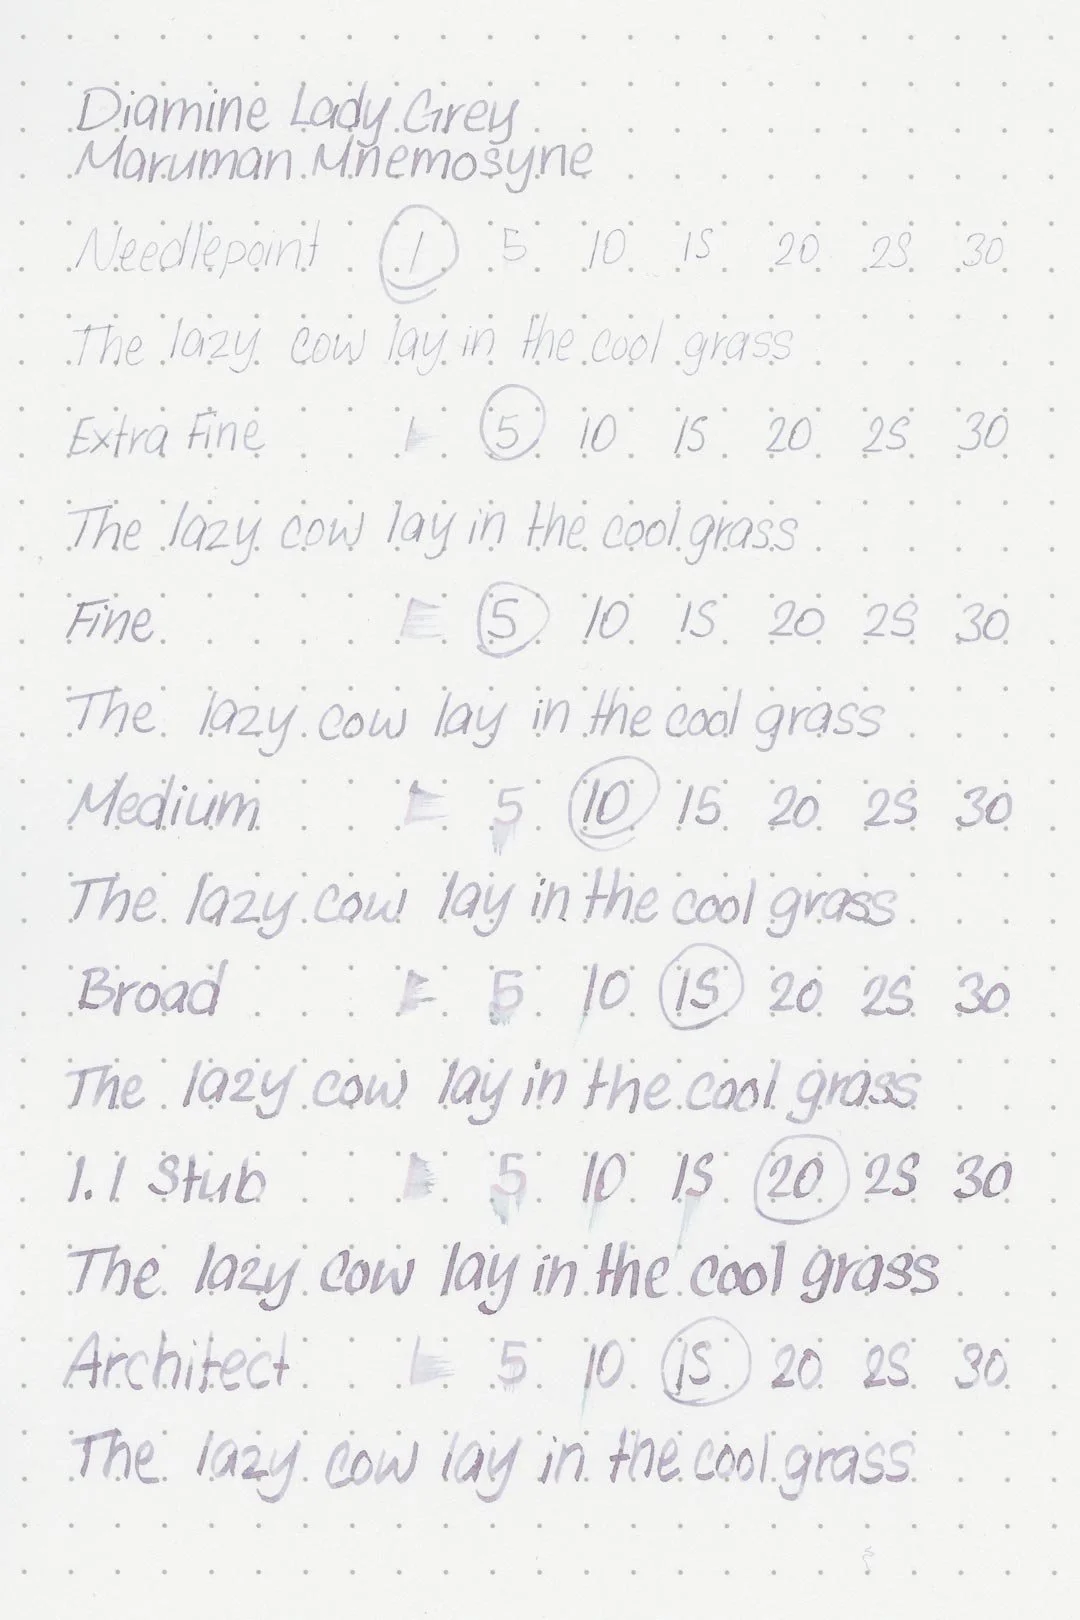 Diamine Lady Grey
Maruman Mnemosyne
Needlepoint 1 5 10 15 20 25 30
The lazy cow lay in the cool grass
Extra Fine 1 5 10 15 20 25 30
The lazy cow lay in the cool grass
Fine 1 5 10 15 20 25 30
The lazy cow lay in the cool grass
Medium 1 5 10 15 20 25 30
The lazy cow lay in the cool grass
Broad 1 5 10 15 20 25 30
The lazy cow lay in the cool grass
1.1 Stub 1 5 10 15 20 25 30
The lazy cow lay in the cool grass
Architect 1 5 10 15 20 25 30
The lazy cow lay in the cool grass